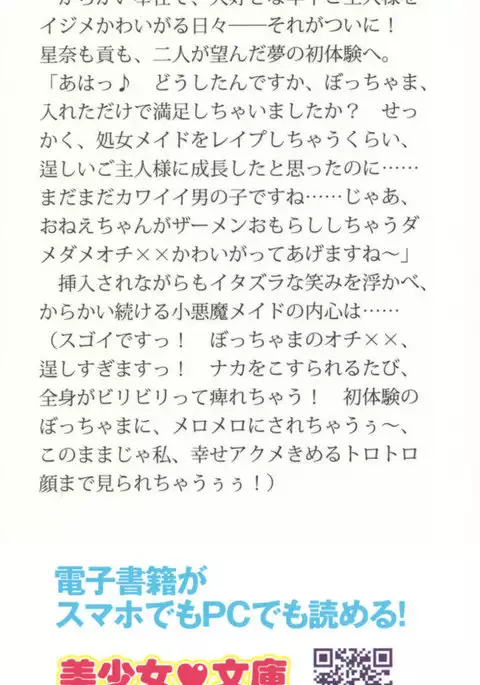 からかい奉仕で、大好きな年下ご主人様を
イジメかわいがる日々――それがついに!
星奈も貢も、二人が望んだ夢の初体験へ。
「あはっ♪ どうしたんですか、ぼっちゃま、
入れただけで満足しちゃいましたか? せっ
かく、処女メイドをレイプしちゃうくらい、
逞しいご主人様に成長したと思ったのに……
まだまだカワイイ男の子ですね……じゃあ、
おねえちゃんがザーメンおもらししちゃうダ
メダメオチ××かわいがってあげますね〜」
挿入されながらもイタズラな笑みを浮かべ、
からかい続ける小悪魔メイドの内心は……
(スゴイですっ! ぼっちゃまのオチ××、
逞しすぎますっ! ナカをこすられるたび、
全身がビリビリって痺れちゃう! 初体験の
ぼっちゃまに、メロメロにされちゃうぅ〜、
このままじゃ私、幸せアクメきめるトロトロ
顔まで見られちゃうぅぅ!)
電子書籍が
スマホでもPCでも読める!
美少女♥文庫